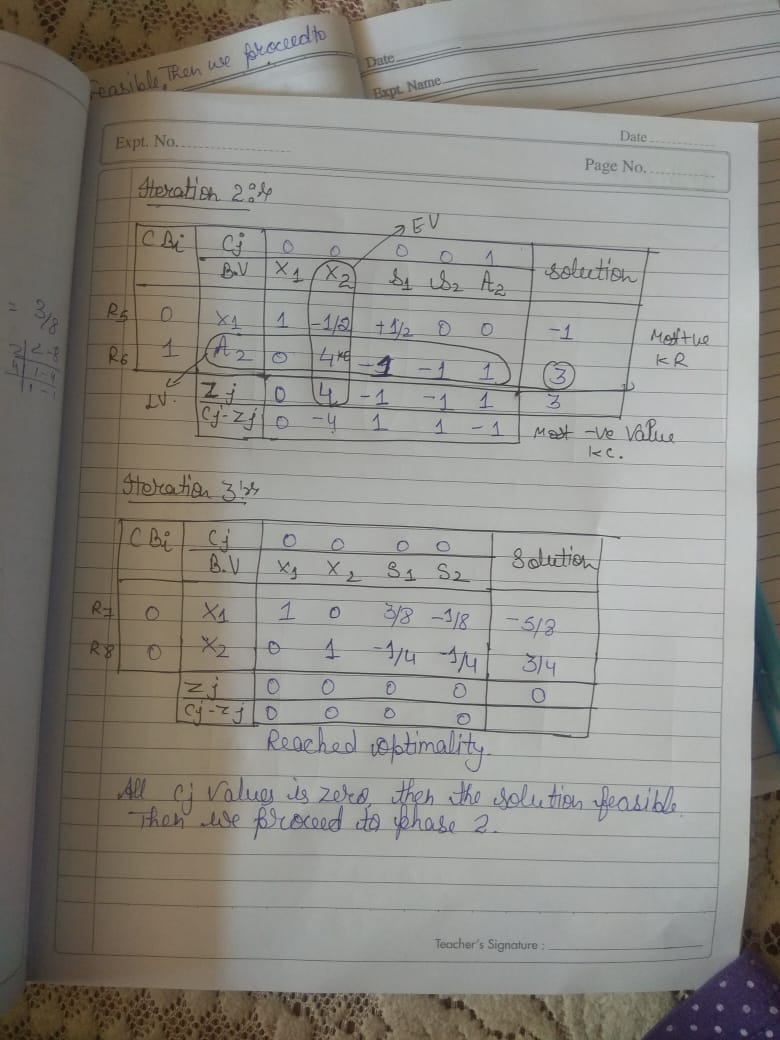 feasible. Then we proceed to
Date
Expt. Name
Expt. No.
Date
Page No.
= 3/8
Iteration 2:
EV
CBi Cj 0 0 0 0 1 solution
B.V X1 X2 S1 S2 A2
R5 0 X1 1 -1/2 +1/2 0 0 -1
Most +ve
KR
R6 1 A2 0 4 -1 -1 1 3
LV. Zj 0 4 -1 -1 1 3
Cj-Zj 0 -4 1 1 -1 Most -ve Value
KC.
Iteration 3:
CBi Cj 0 0 0 0 Solution
B.V X1 X2 S1 S2
R7 0 X1 1 0 3/8 -1/8 -5/8
R8 0 X2 0 1 -1/4 -1/4 3/4
Zj 0 0 0 0 0
Cj-Zj 0 0 0 0
Reached optimality.
All Cj Values is zero, then the solution feasible.
Then we proceed to phase 2.
Teacher's Signature :